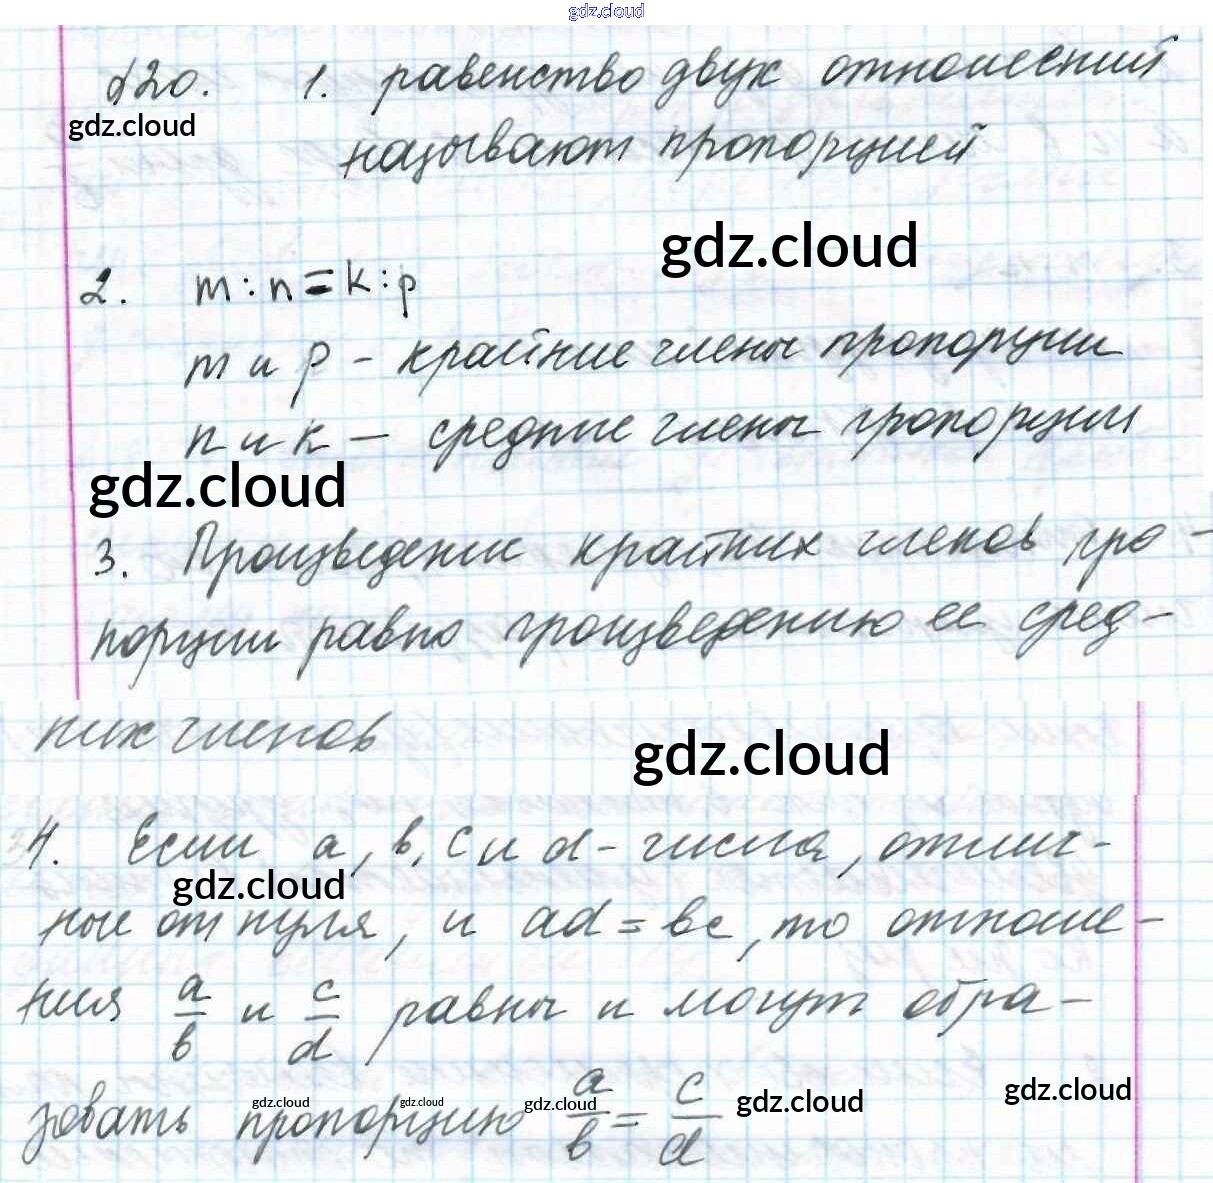 gdz.cloud
§20. 1. равенство двух отношений
gdz.cloud
называют пропорцией
gdz.cloud
2. m : n = k : p
m и p - крайние члены пропорции
n и k - средние члены пропорции
gdz.cloud
3. Произведение крайних членов про-
порции равно произведению ее сред-
них членов
gdz.cloud
4. Если a, b, c и d - числа, отлич-
gdz.cloud
ные от нуля, и ad = bc, то отноше-
ния a/b и c/d равны и могут обра-
зовать пропорцию a/b = c/d
gdz.cloud gdz.cloud gdz.cloud gdz.cloud gdz.cloud